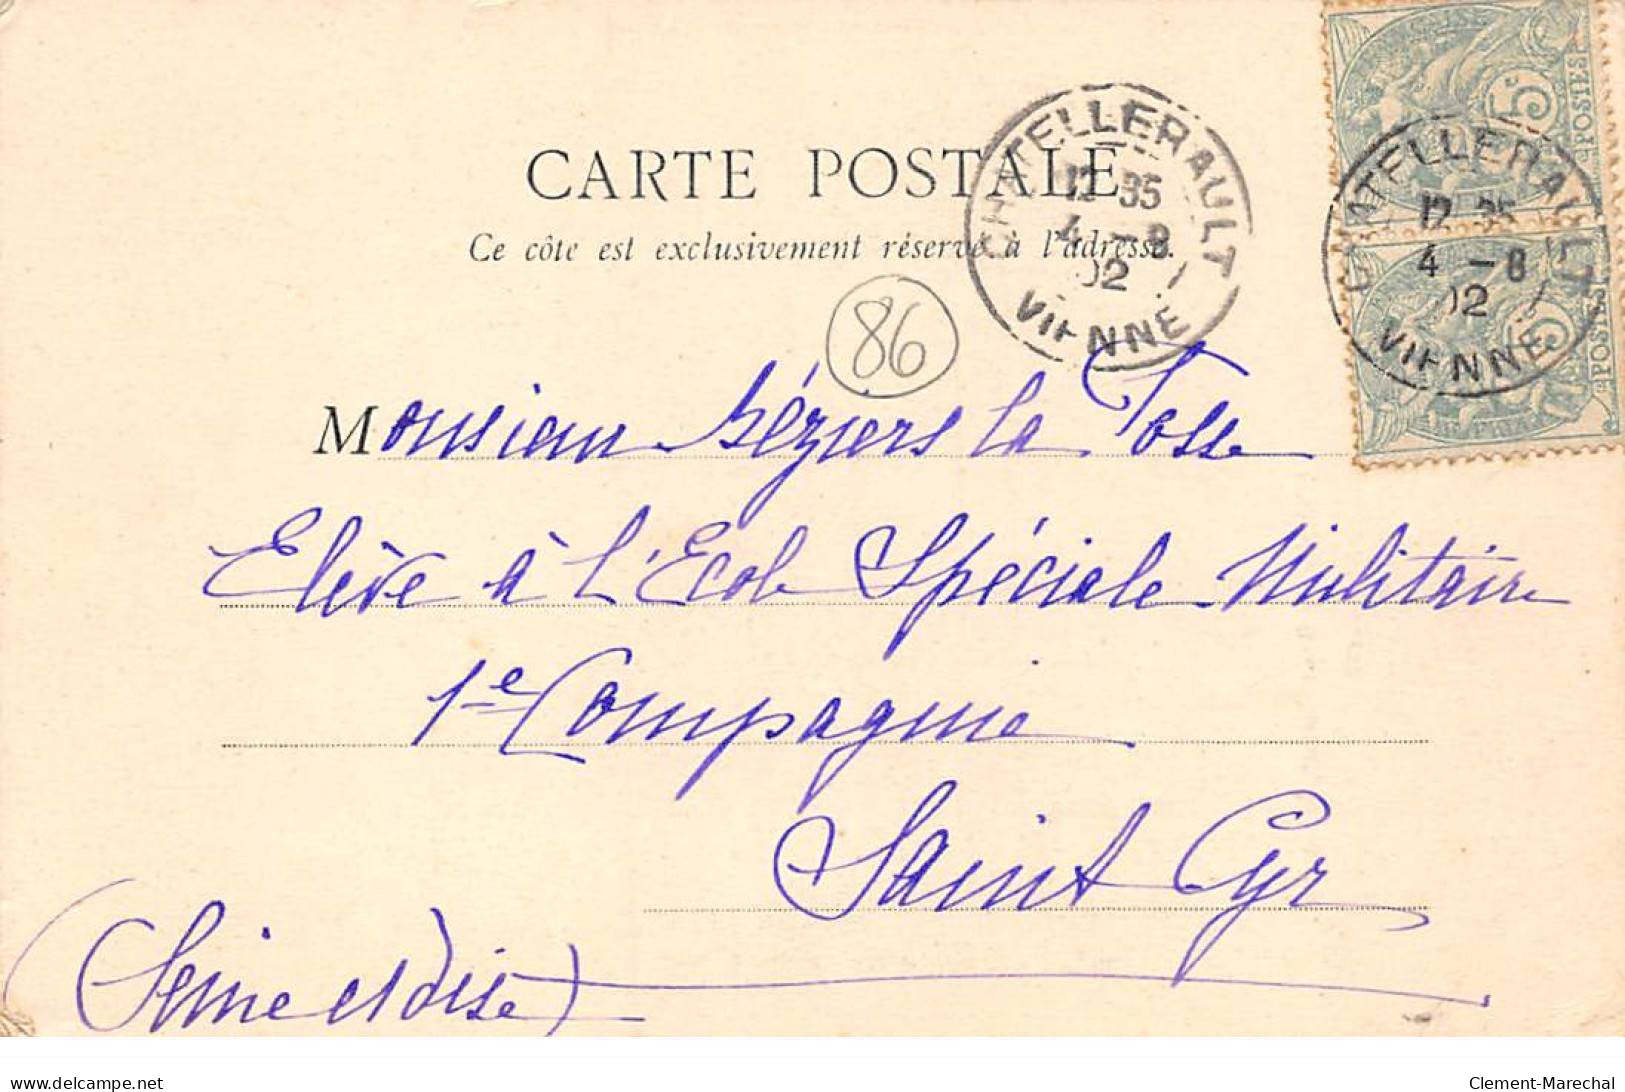 CARTE POSTALE
Ce côte est exclusivement réservé à l'adresse.
CHATELLERAULT
12 35
4 - 8
02
VIENNE
CHATELLERAULT
12 35
4 - 8
02
VIENNE
5c
POSTES
5c
POSTES
86
Monsieur Béziers la Fosse
Elève à l'Ecole Spéciale Militaire
1e Compagnie
Saint Cyr
(Seine et Oise)
delcampe.net
Clement-Marechal